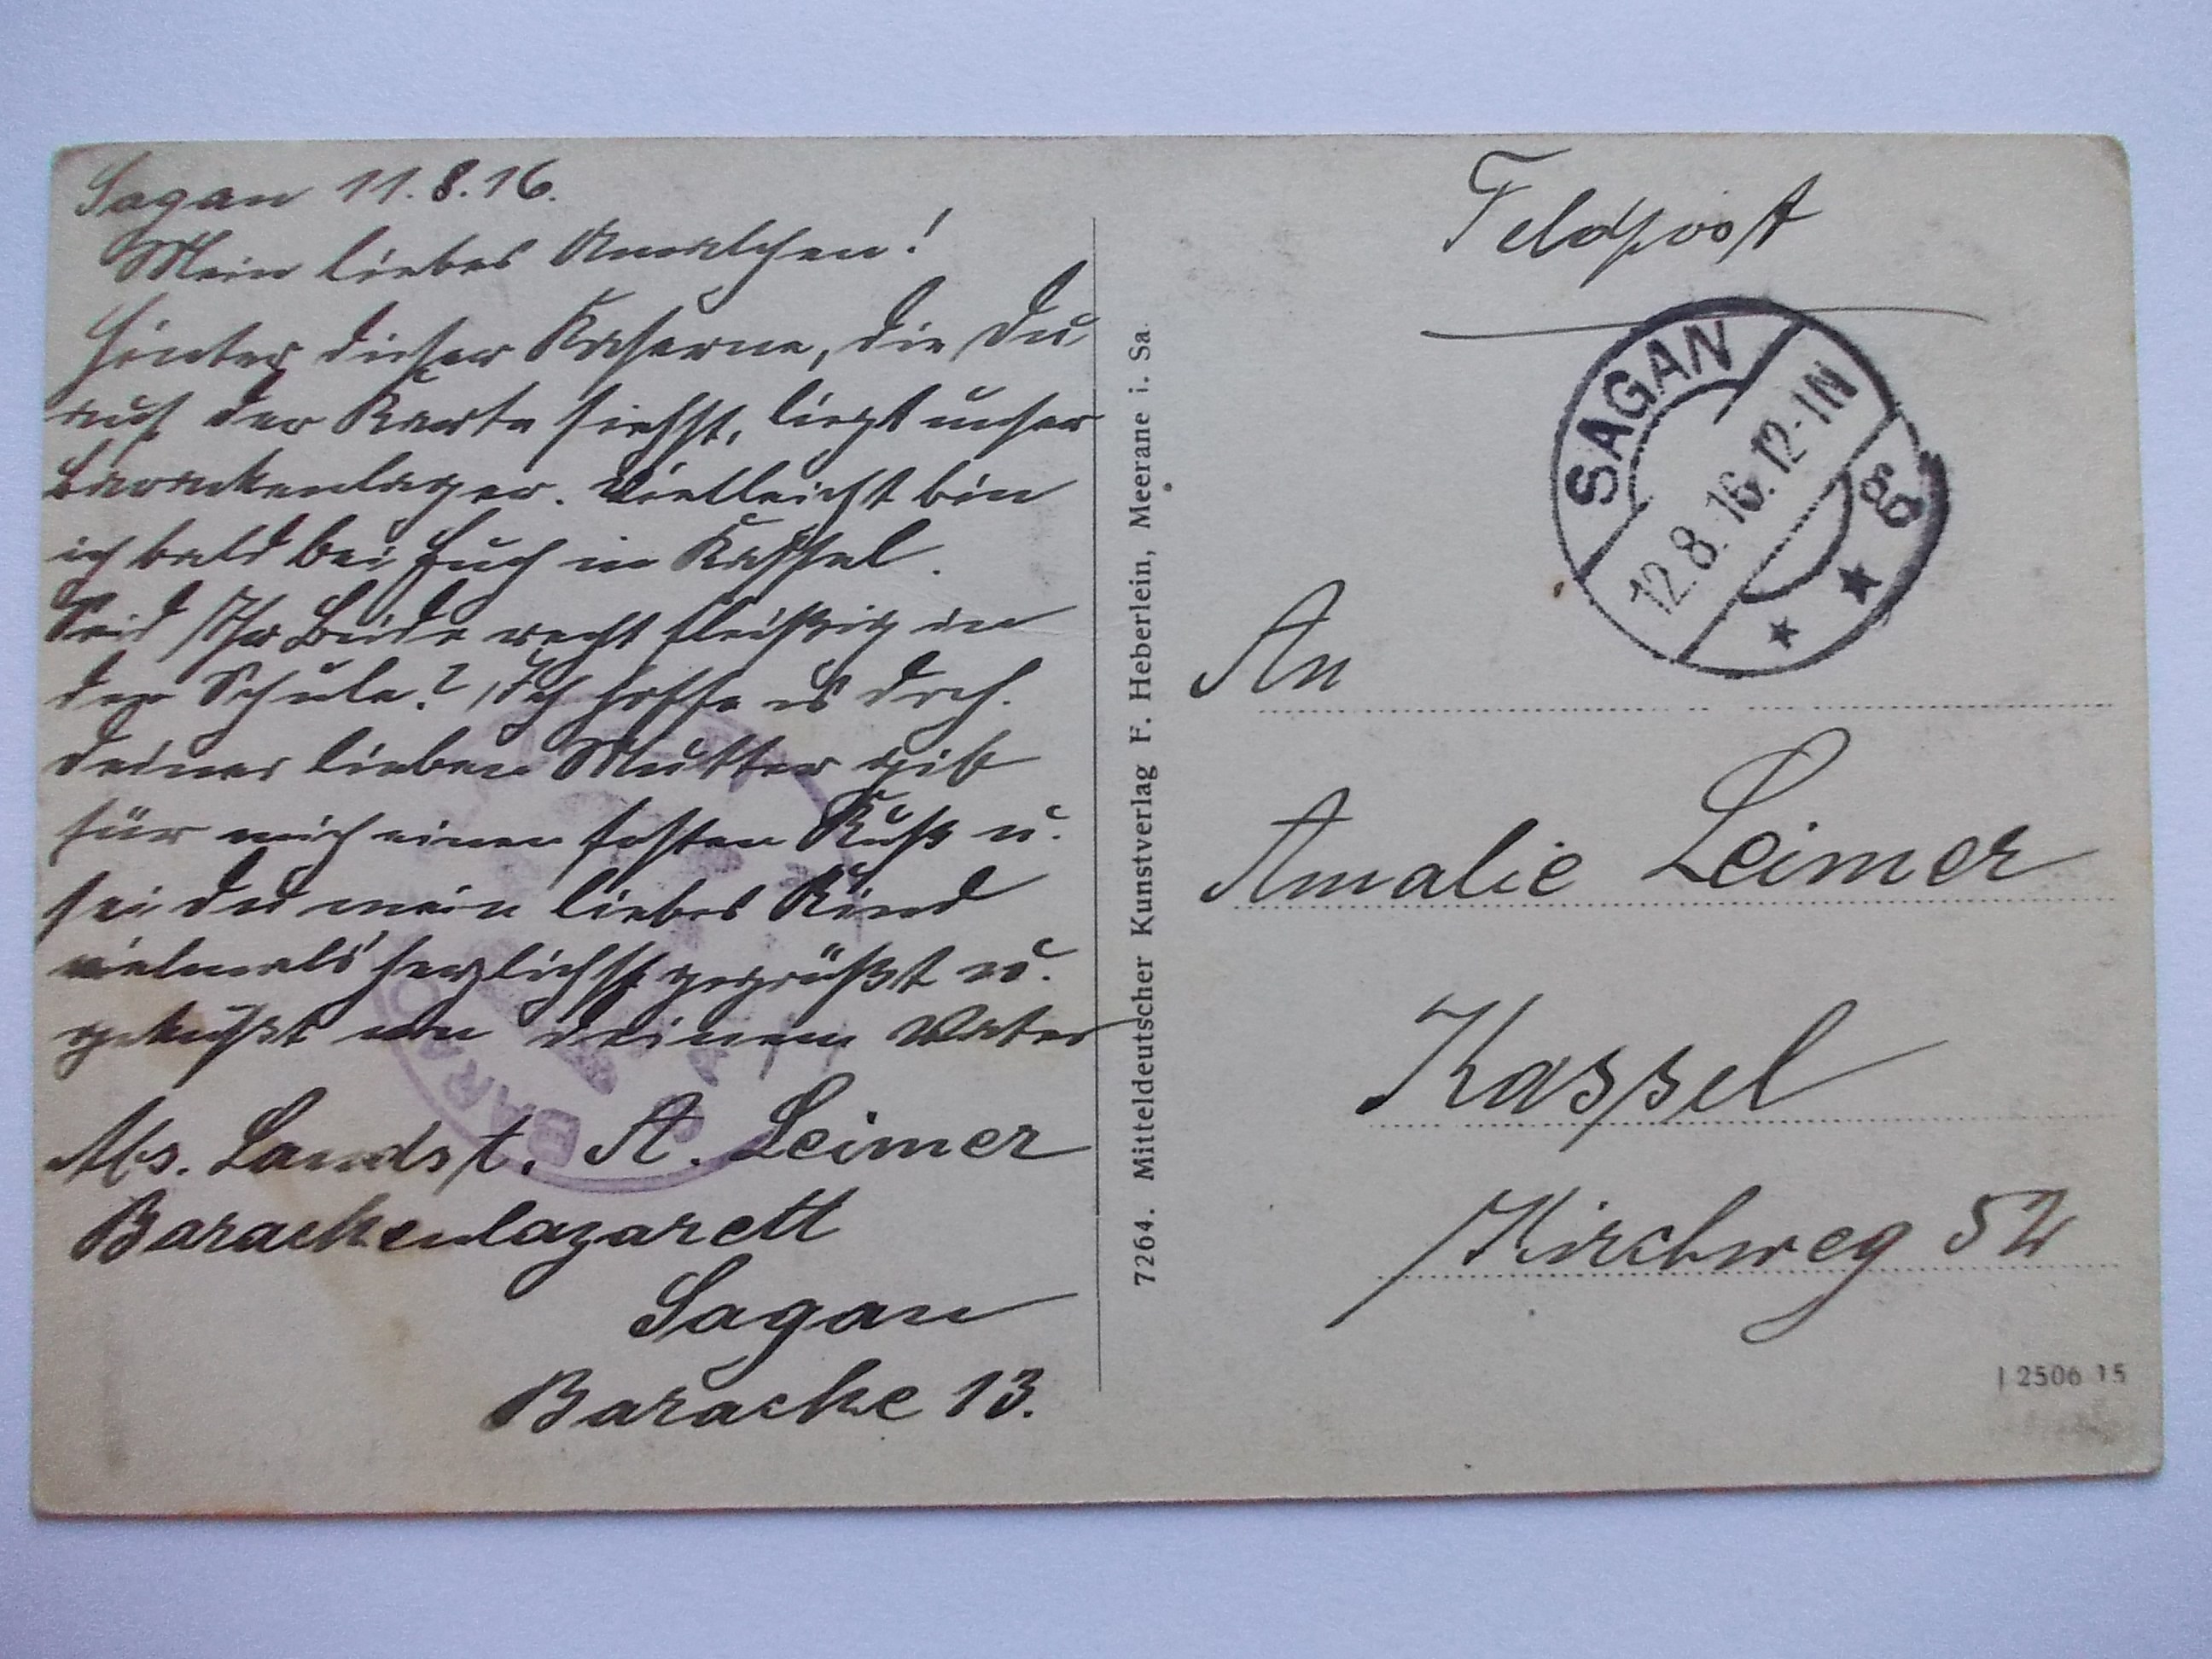 Sagan 11.8.16.
Mein liebes Amalchen!
Hinter dieser Kaserne, die Du
auf der Karte siehst, liegt unser
Barackenlager. Vielleicht bin
ich bald bei Euch in Kassel.
Seid Ihr Beide recht fleißig in
der Schule? Ich hoffe es doch.
Deiner lieben Mutter gib
für mich einen festen Kuß u.
sei Du mein liebes Kind
vielmals herzlichst gegrüßt u.
geküßt von Deinem Vater
Abs. Landst. A. Leimer
Barackenlazarett
Sagan
Baracke 13.
BARA
7264. Mitteldeutscher Kunstverlag F. Heberlein, Meerane i. Sa.
Feldpost
SAGAN
12.8.16.12-1N
An
Amalie Leimer
Kassel
Kirchweg 52
I 2506 15